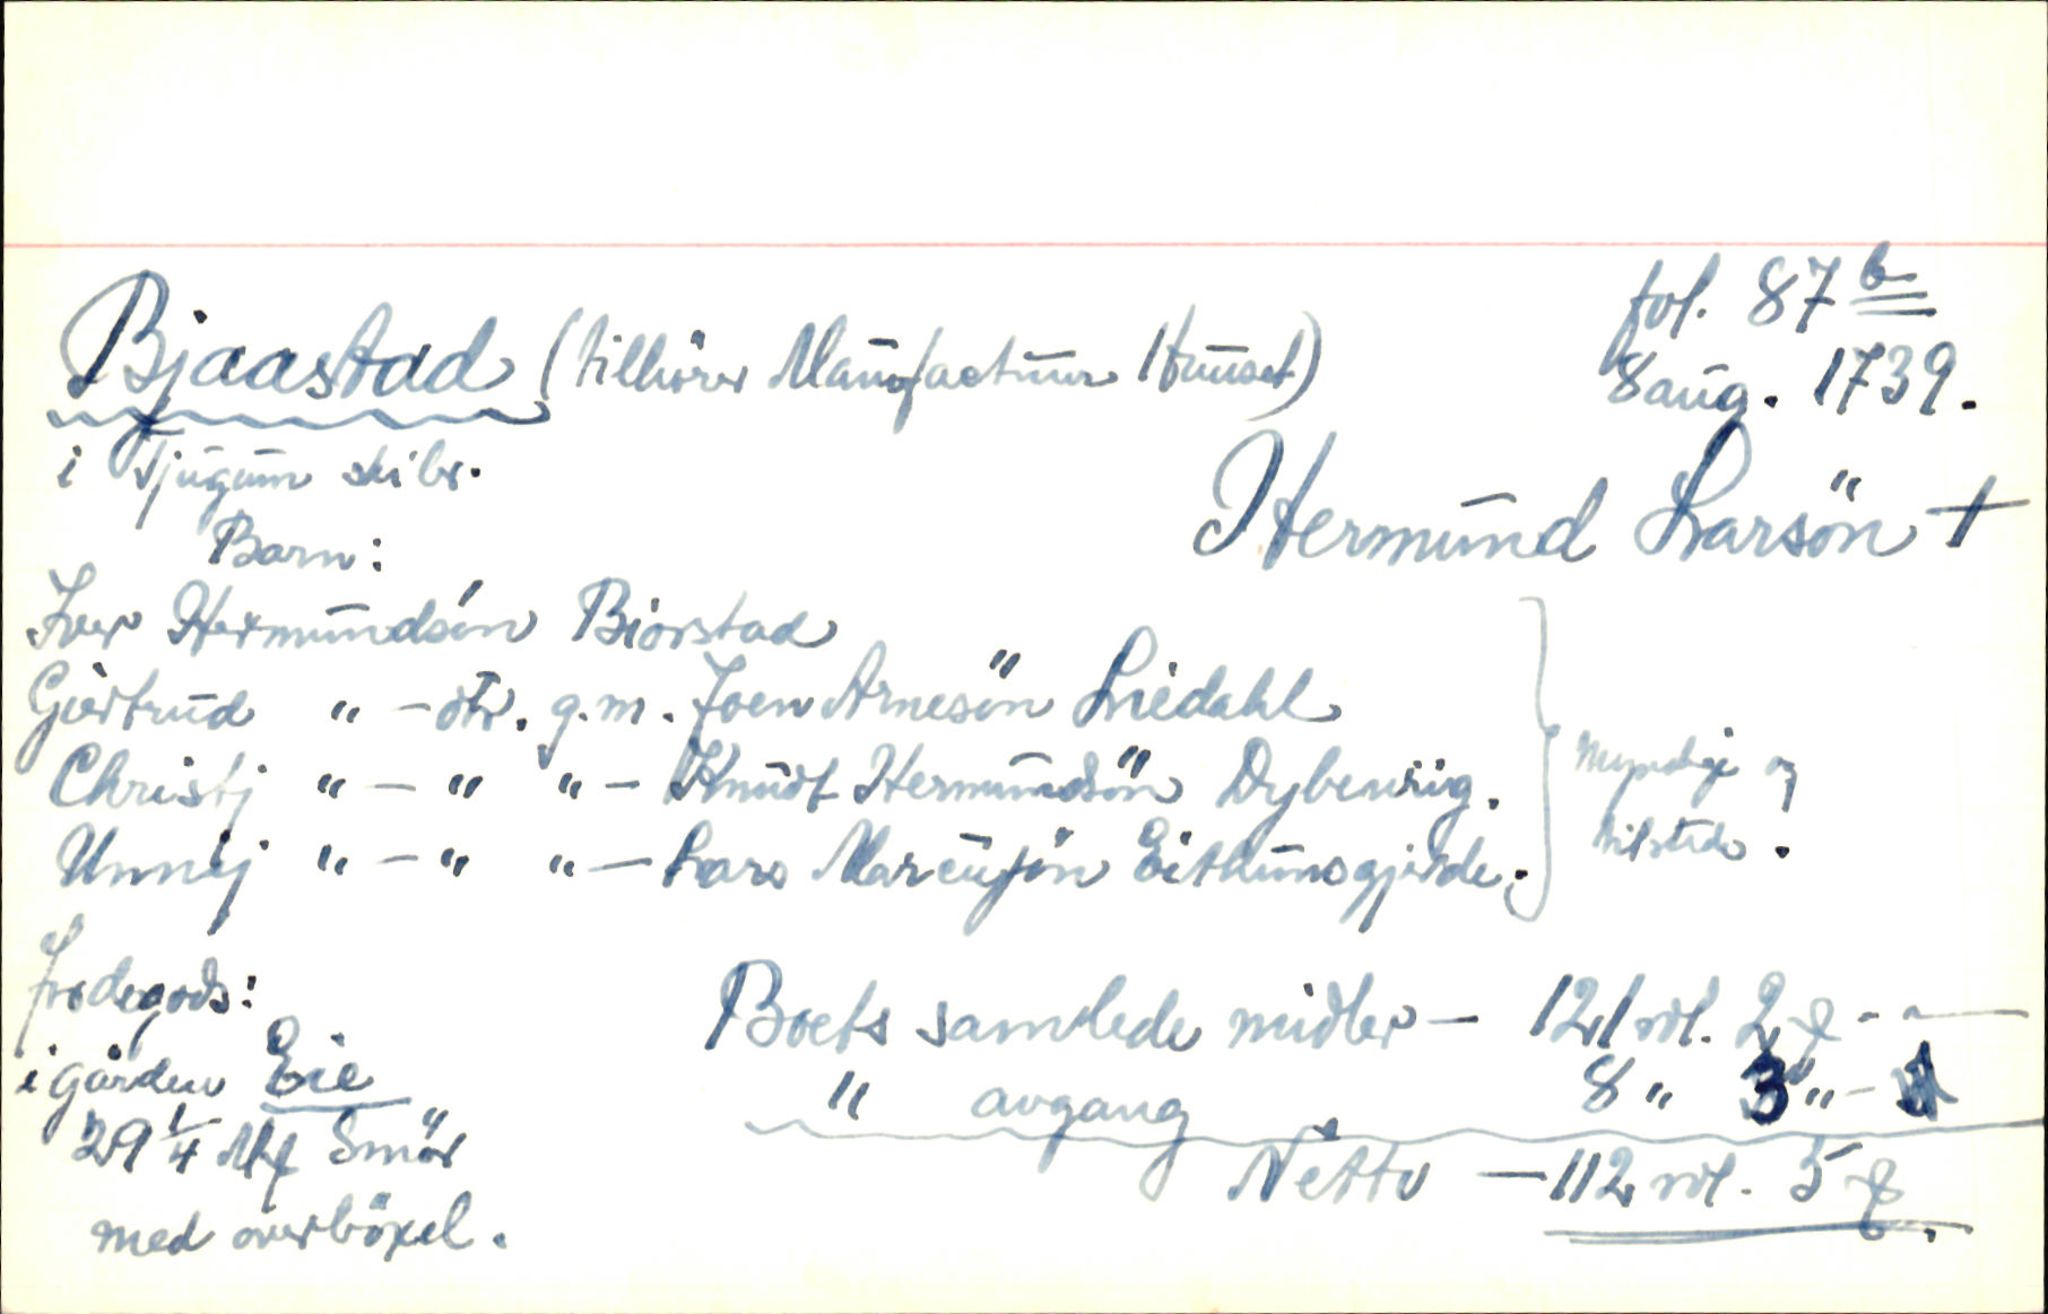 fol. 87 b
Bjaastad (tilhörer Manufactuur Huuset) 8 aug. 1739.
i Tjugum skibr.
Hermund Larsön +
Barn:
Iver Hermundsön Biorstad
Giertrud " - dtr. g.m. Joen Arnesön Liedahl
Christj " - " " - Knudt Hermundsön Dybevig.
Unnij " - " " - Lars Marcusön Eithunsgjerde.
Myndige og
tilstede.
Jordegods:
i gården Eie
29 1/4 Mk Smör
med overböxel.
Boets samlede midler - 121 rdl. 2 ₰ - - -
" avgang 8 " 3 " -
Netto - 112 rdl. 5 ₰.